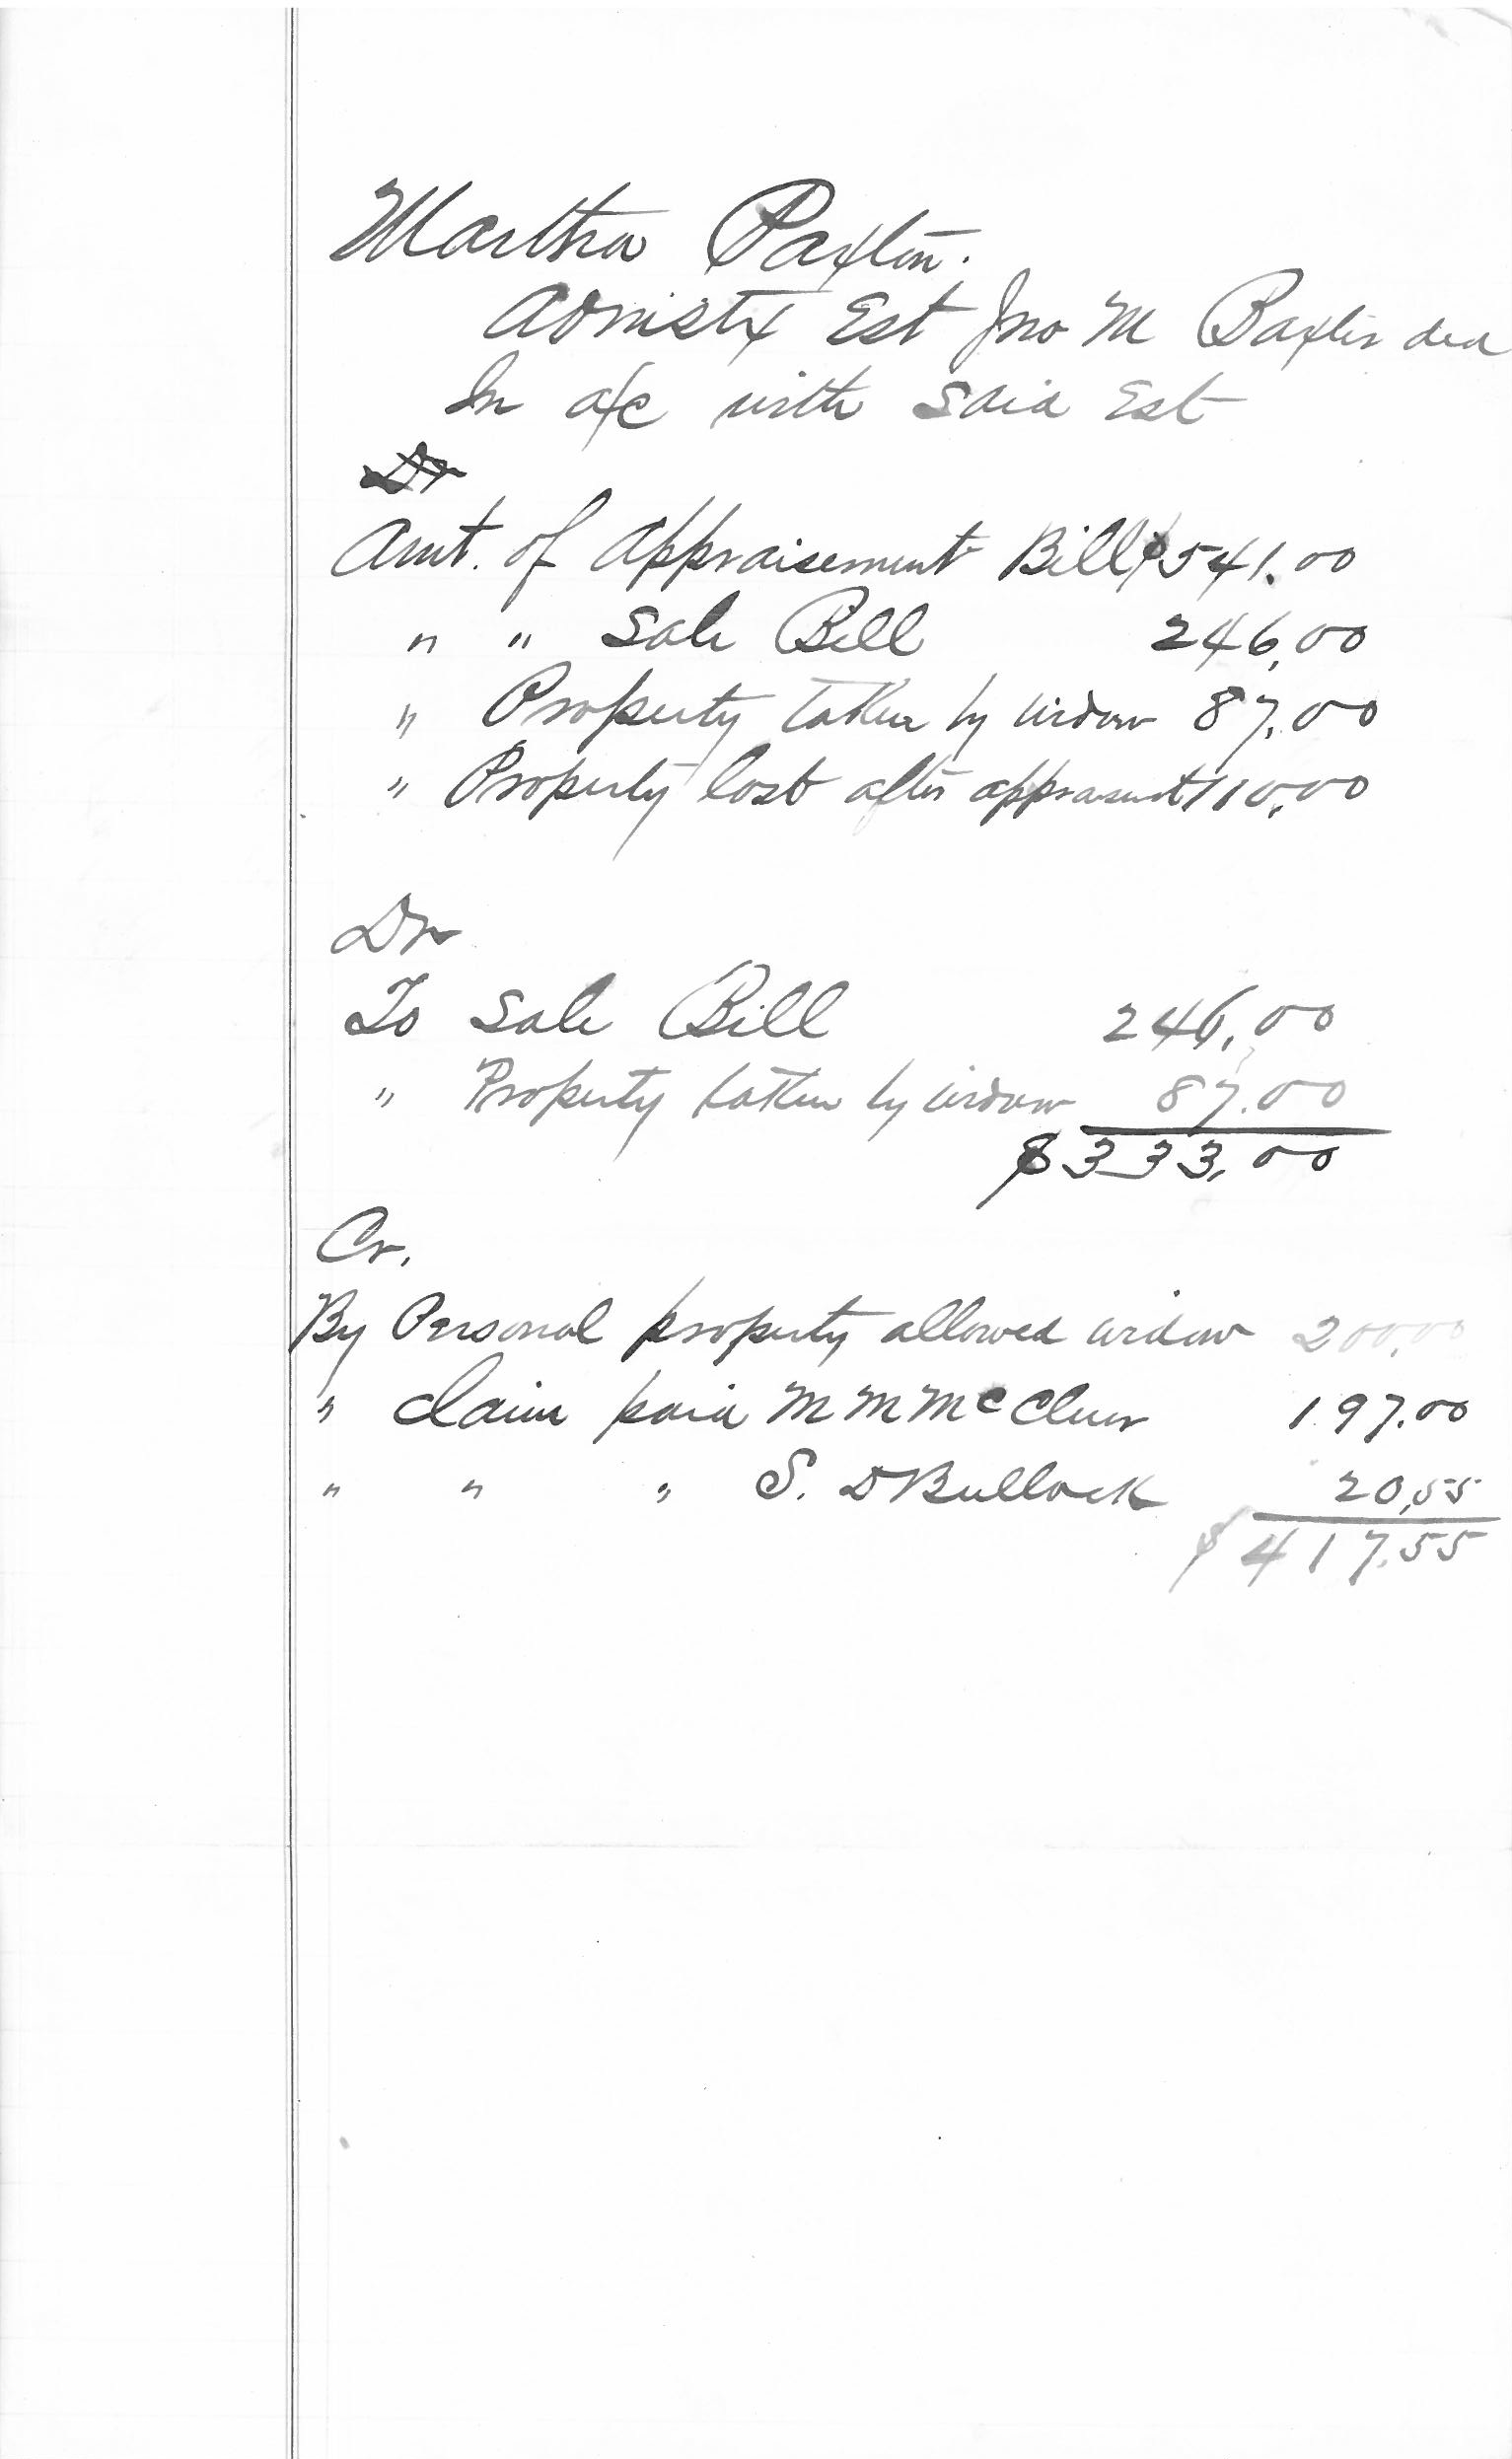 Martha Paxton.
Admistx Est Jno M Baxter decd
In a/c with Said Est
Dr
Amt. of Appraisement Bill $541.00
" " Sale Bill 246.00
" Property taken by widow 87.00
" Property lost after appraisemt 110.00
Dr
To Sale Bill 246.00
" Property taken by widow 87.00
$333.00
Cr.
By Personal property allowed widow 200.00
" Claim paid M M McCluer 197.00
" " " S. D Bullock 20.55
$417.55